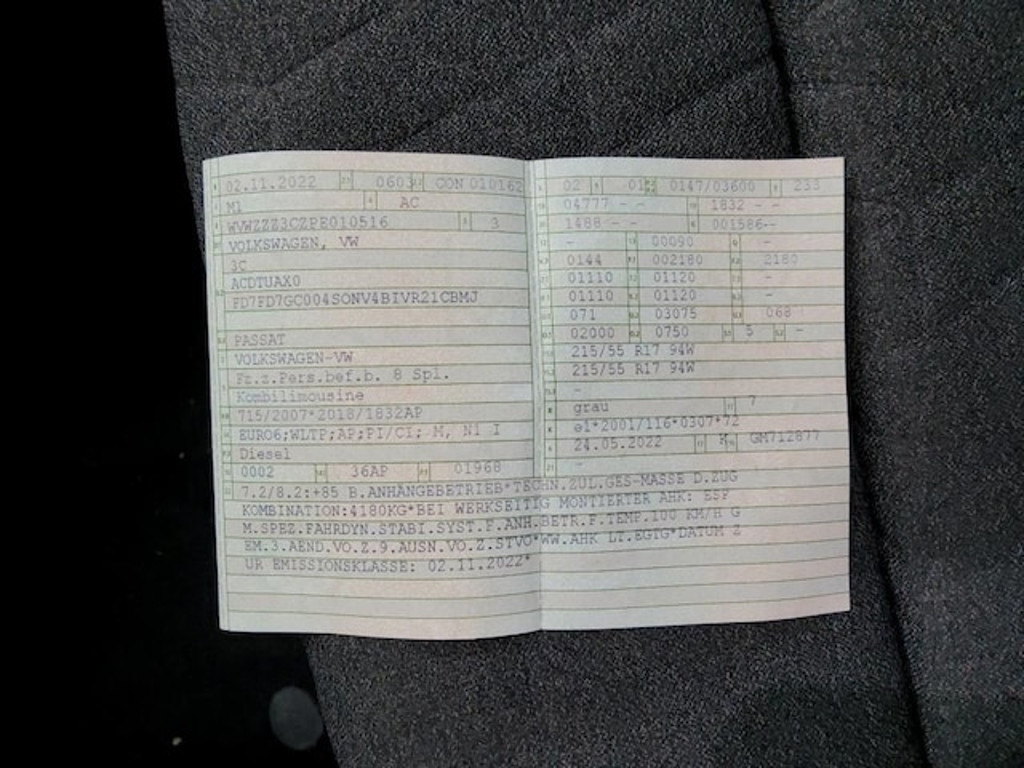 02.11.2022 0603 CON 010162
M1 AC
WVWZZZ3CZPE010516 3
VOLKSWAGEN, VW
3C
ACDTUAX0
FD7FD7GC004SONV4BIVR21CBMJ
PASSAT
VOLKSWAGEN-VW
Fz.z.Pers.bef.b. 8 Spl.
Kombilimousine
715/2007*2018/1832AP
EURO6;WLTP;AP;PI/CI; M, N1 I
Diesel
0002 36AP 01968
02 01 0147/03600 233
04777 - - 1832 - -
1488 - - 001586--
- 00090 -
0144 002180 2180
01110 01120 -
01110 01120 -
071 03075 068
02000 0750 5 -
215/55 R17 94W
215/55 R17 94W
-
grau 7
e1*2001/116*0307*72
24.05.2022 K GM712877
-
7.2/8.2:+85 B.ANHÄNGEBETRIEB*TECHN.ZUL.GES-MASSE D.ZUG
KOMBINATION:4180KG*BEI WERKSEITIG MONTIERTER AHK: ESP
M.SPEZ.FAHRDYN.STABI.SYST.F.ANH.BETR.F.TEMP.100 KM/H G
EM.3.AEND.VO.Z.9.AUSN.VO.Z.STVO*WW.AHK LT.EGTG*DATUM Z
UR EMISSIONSKLASSE: 02.11.2022*